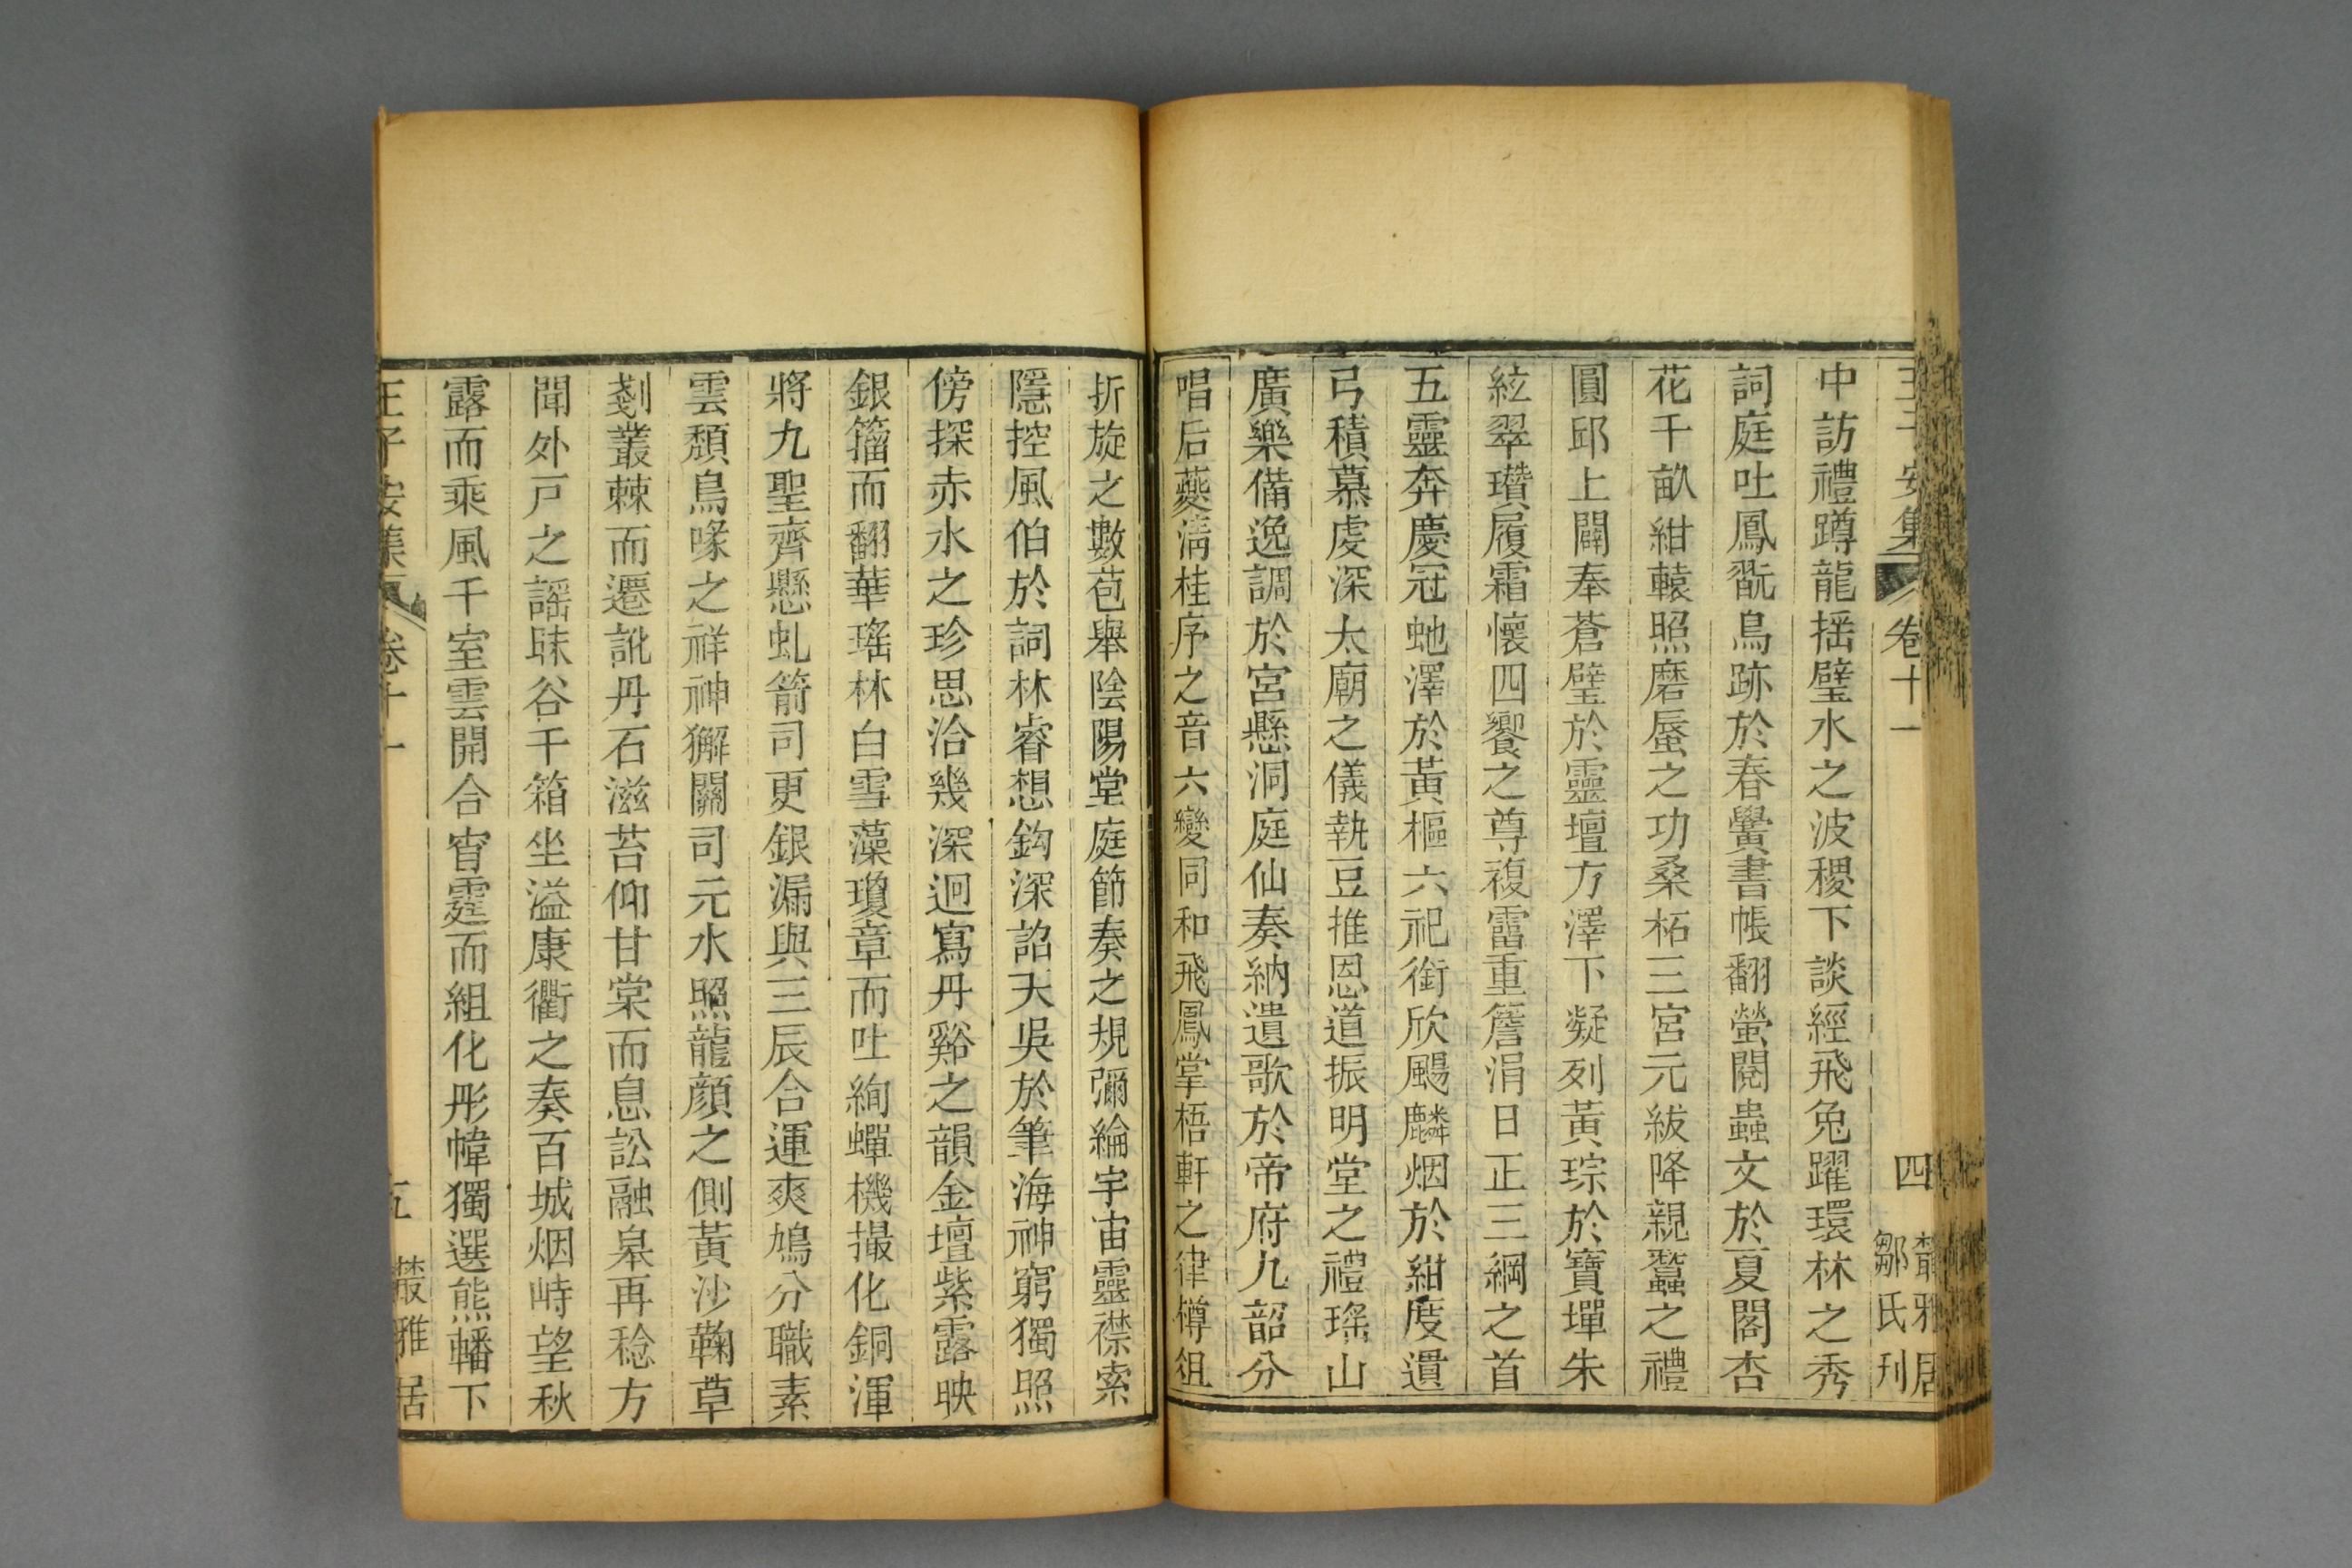 王子安集 卷十一 四 叢雅居鄒氏刊
中訪禮蹲龍揺璧水之波稷下談經飛兔躍環林之秀
詞庭吐鳳翫鳥跡於春黌書帳翻螢閱蟲文於夏閣杏
花千畝紺轅照磨蜃之功桑柘三宮元紱降親蠶之禮
圓邱上闢奉蒼璧於靈壇方澤下凝列黃琮於寶墠朱
紘翠瓚履霜懷四饗之尊複霤重簷涓日正三綱之首
五靈奔慶冠虵澤於黃樞六祀銜欣颺麟烟於紺度遺
弓積慕虔深太廟之儀執豆推恩道振明堂之禮瑤山
廣樂備逸調於宮懸洞庭仙奏納遺歌於帝府九韶分
唱后夔淸桂序之音六變同和飛鳳掌梧軒之律樽俎
折旋之數苞舉陰陽堂庭節奏之規彌綸宇宙靈襟索
隱控風伯於詞林睿想鈎深詔天吳於筆海神窮獨照
傍探赤水之珍思洽幾深迥寫丹谿之韻金壇紫露映
銀籀而翻華瑤林白雪藻瓊章而吐絢蟬機撮化銅渾
將九聖齊懸虬箭司更銀漏與三辰合運爽鳩分職素
雲頹鳥喙之祥神獬關司元水照龍顏之側黃沙鞠草
剗叢棘而遷訛丹石滋苔仰甘棠而息訟融臯再稔方
聞外戸之謡昧谷千箱坐溢康衢之奏百城烟峙望秋
露而乘風千室雲開合宵霆而組化彤幃獨選熊轓下
王子安集 卷十一 五 叢雅居